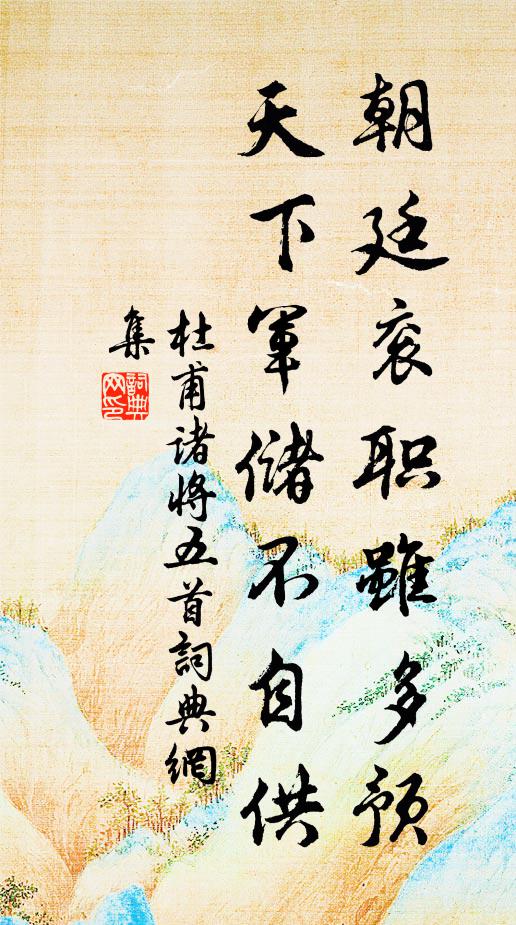 朝廷衮职虽多预
天下军储不自供
杜甫诸将五首词典网
集
詞典
网印